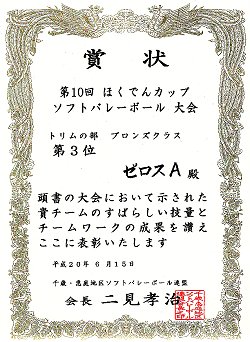 賞状
第10回 ほくでんカップ
ソフトバレーボール 大会
トリムの部 ブロンズクラス
第３位
ゼロスＡ 殿
頭書の大会において示された
貴チームのすばらしい技量と
チームワークの成果を讃え
ここに表彰いたします
平成２０年６月１５日
千歳・恵庭地区ソフトバレーボール連盟
会長 二見孝治